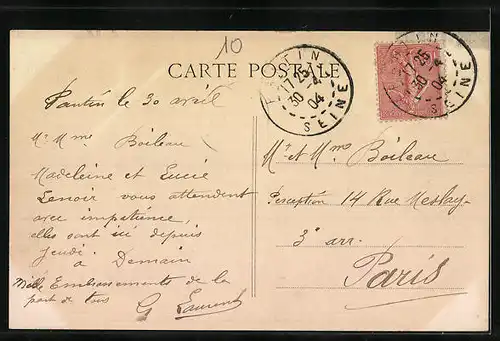 10
CARTE POSTALE
PANTIN
17 25
30 -4
04
SEINE
17 25
30 -4
04
SEINE
Pantin le 30 avril
Mr Mme Boileau
Madeleine et Lucie
Lenoir vous attendent
avec impatience,
elles sont ici depuis
Jeudi.
à Demain
Mille Embrassements de la
part de tous
G Laurent
Mr et Mme Boileau
Perception 14 Rue Meslay-
3e arr.
Paris